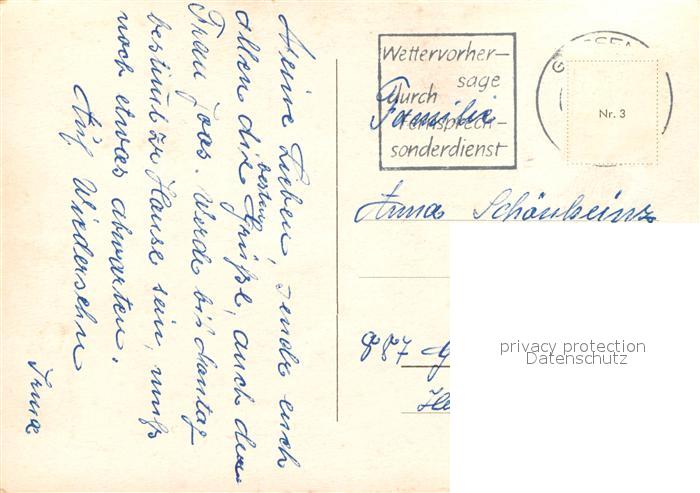 Meine Lieben, sende euch
allen die besten Grüße, auch den
Frau Joas. Werde bis Montag
bestimt zu Hause sein, muß
noch etwas abwarten.
Auf Wiedersehn
Irma
Wettervorher-
sage
durch
Fernsprech-
sonderdienst
Nr. 3
Familie
Anna Schönheinz
887 G
privacy protection
Datenschutz